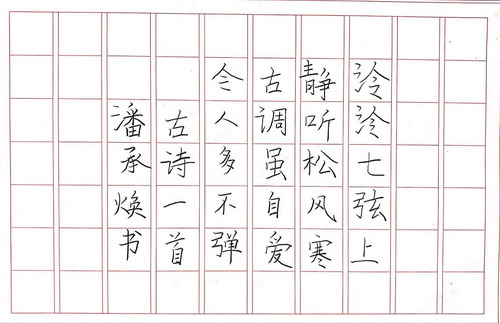 泠泠七弦上
静听松风寒
古调虽自爱
今人多不弹
古诗一首
潘承焕书